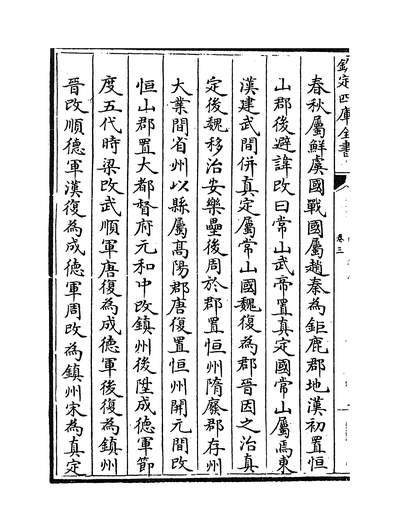 欽定四庫全書
卷三
春秋屬鮮虞國戰國屬趙秦為鉅鹿郡地漢初置恒
山郡後避諱改曰常山武帝置真定國常山屬焉東
漢建武間併真定屬常山國魏復為郡晉因之治真
定後魏移治安樂壘後周於郡置恒州隋廢郡存州
大業間省州以縣屬髙陽郡唐復置恒州開元間改
恒山郡置大都督府元和中改鎮州後陞成徳軍節
度五代時梁改武順軍唐復為成徳軍後復為鎮州
晉改順徳軍漢復為成徳軍周改為鎮州宋為真定